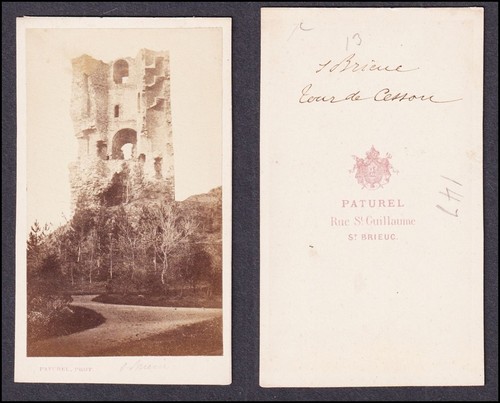 PATUREL, PHOT.
S Brieuc
13
S Brieuc
Tour de Cesson
PATUREL
Rue St Guillaume
ST BRIEUC.
147